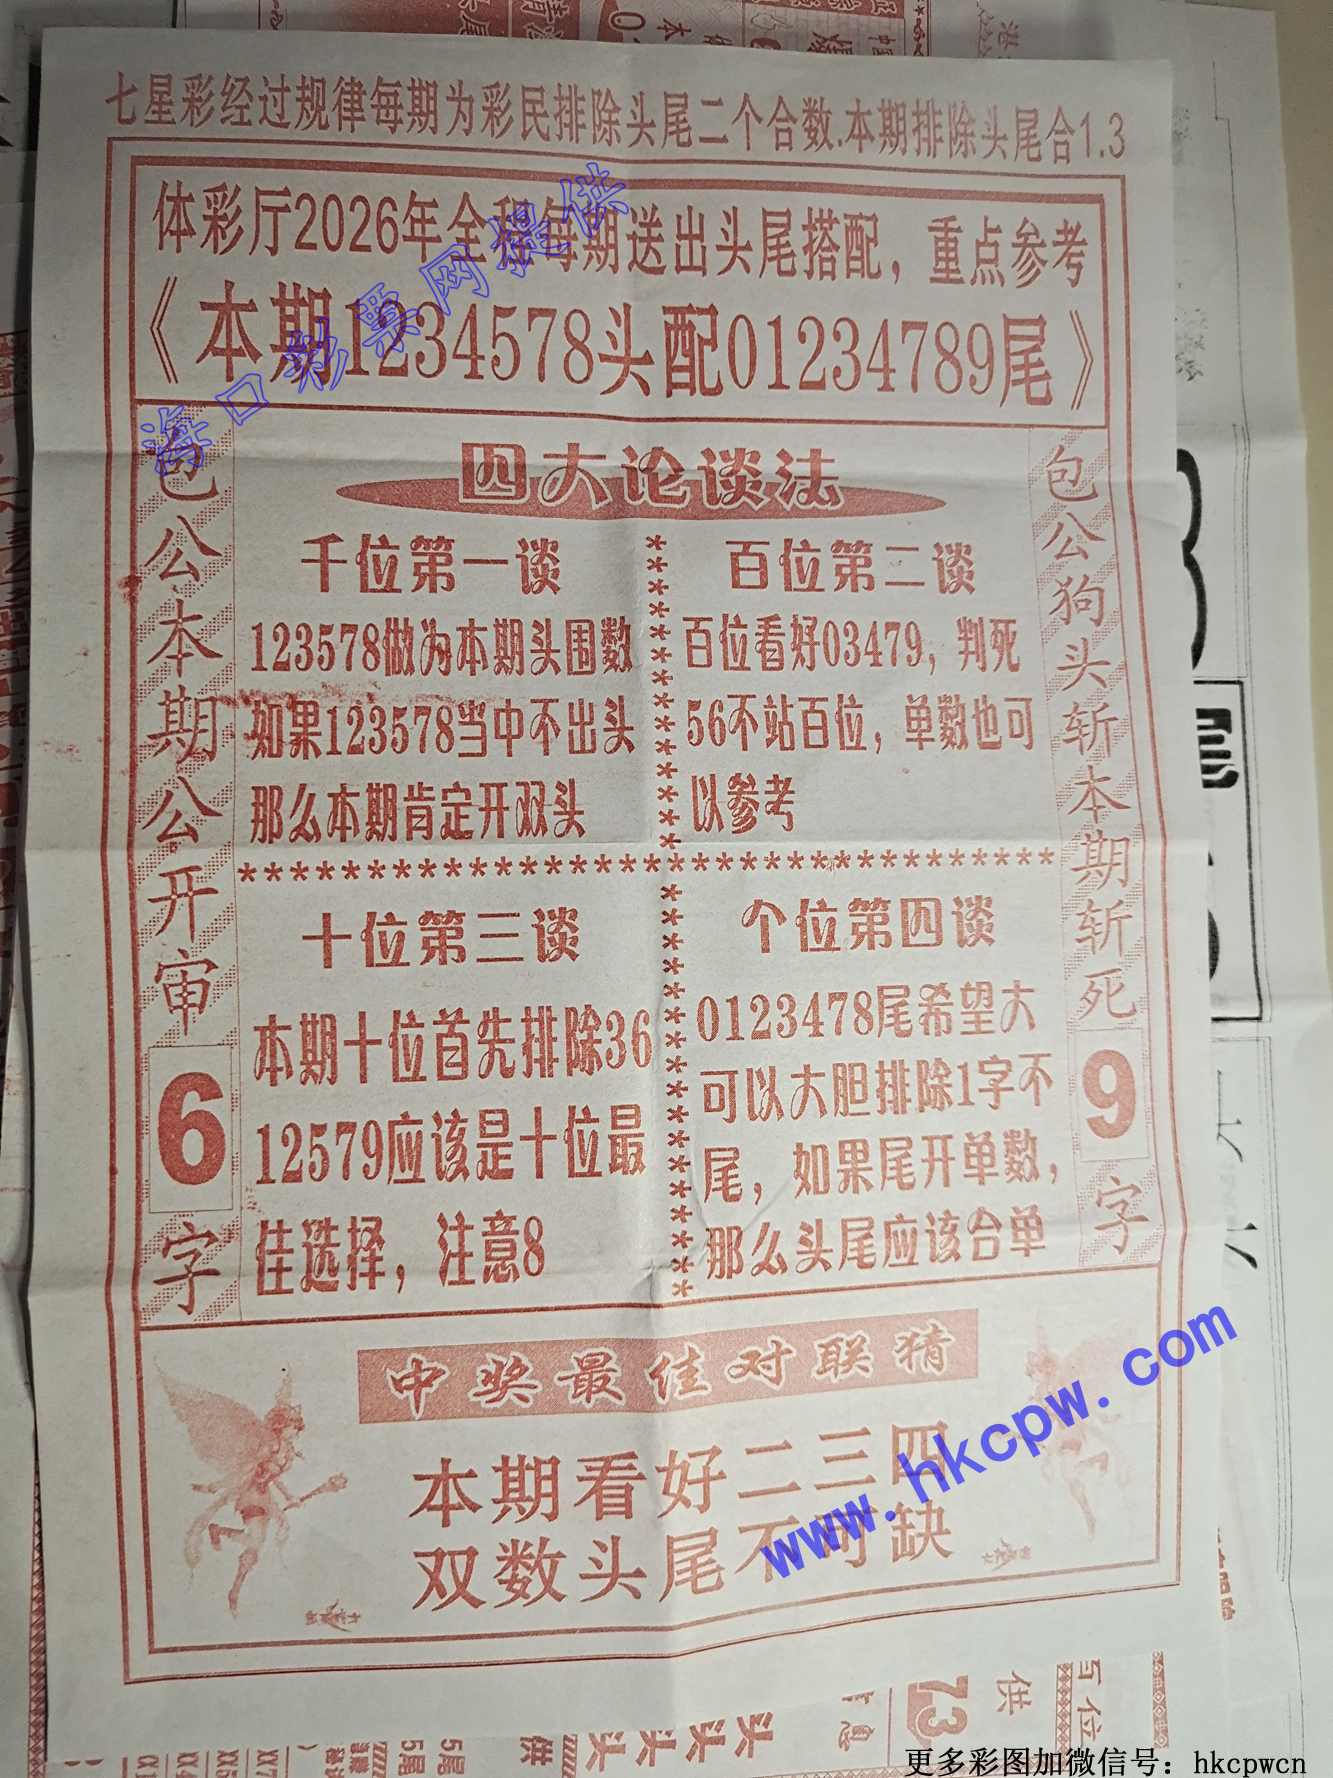 七星彩经过规律每期为彩民排除头尾二个合数.本期排除头尾合1.3
体彩厅2026年全程每期送出头尾搭配，重点参考
《本期1234578头配01234789尾》
海口彩票网提供
包公本期公开审6字
四大论谈法
千位第一谈
123578做为本期头围数
如果123578当中不出头
那么本期肯定开双头
百位第二谈
百位看好03479，判死
56不站百位，单数也可
以参考
十位第三谈
本期十位首先排除36
12579应该是十位最
佳选择，注意8
个位第四谈
0123478尾希望大
可以大胆排除1字不
尾，如果尾开单数，
那么头尾应该合单
包公狗头斩本期斩死9字
中奖最佳对联猜
本期看好二三四
双数头尾不可缺
www.hkcpw.com
供
百位
73
息
头头头头
供
5尾
5尾
更多彩图加微信号：hkcpwcn